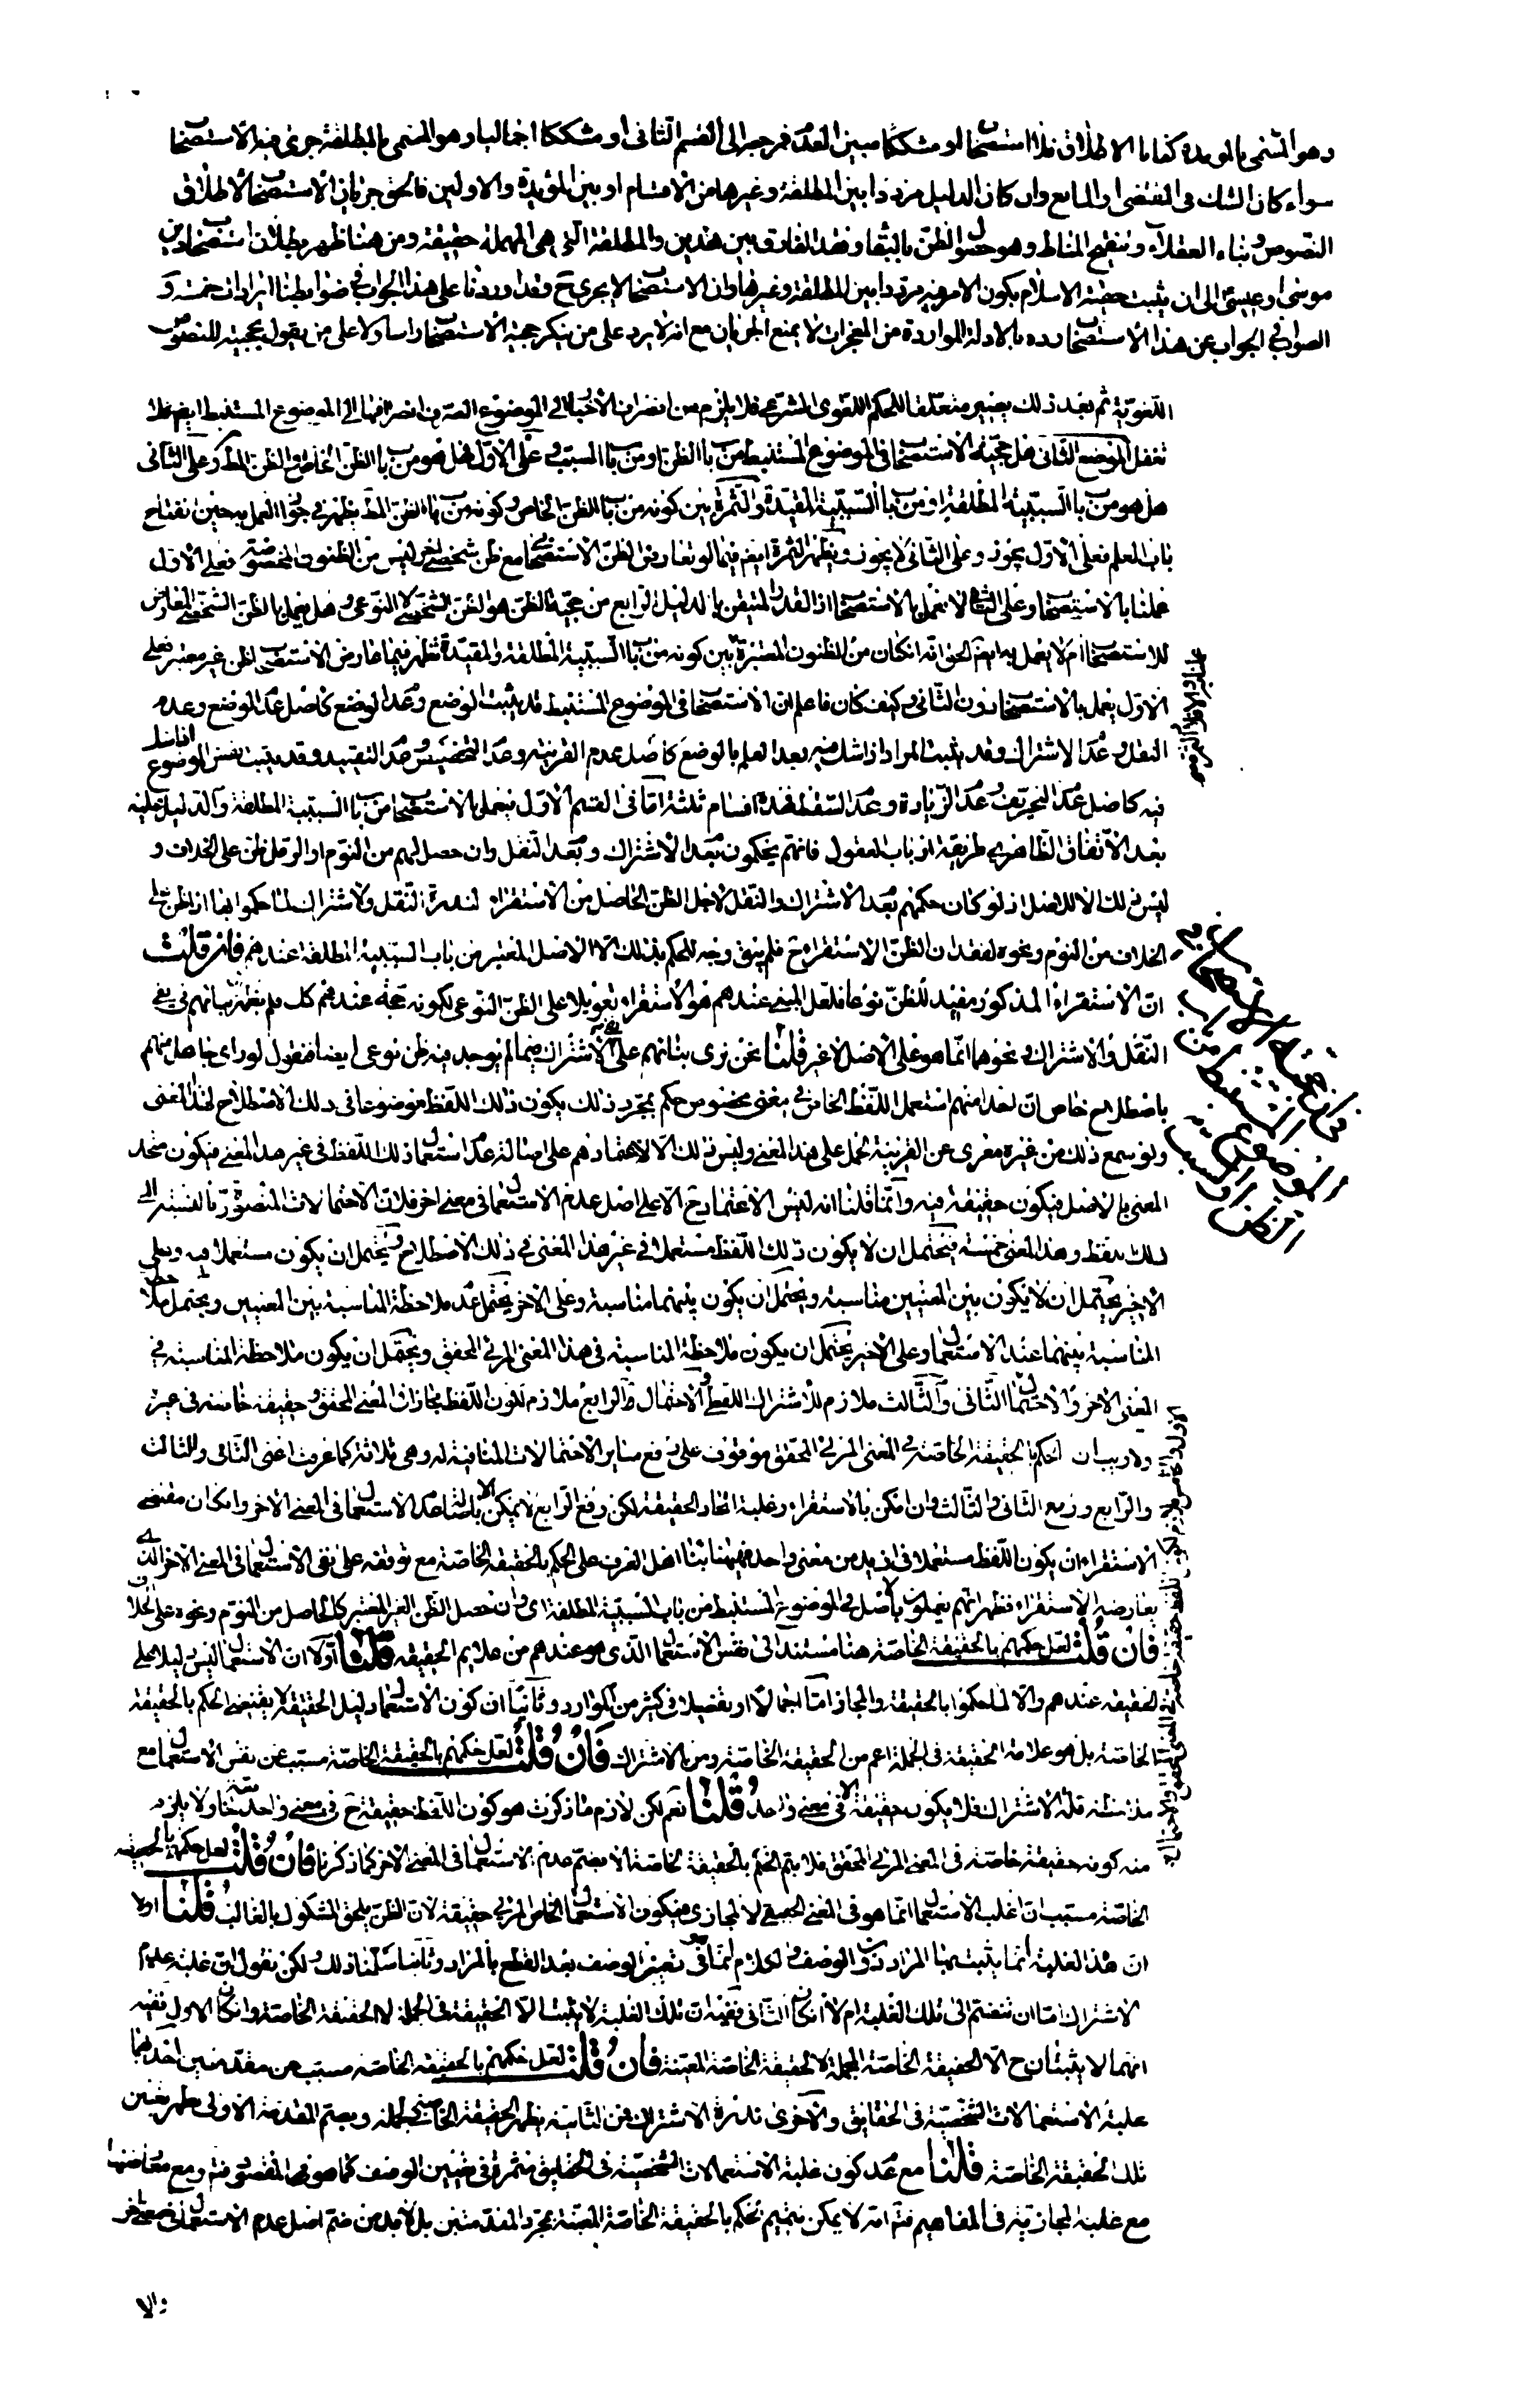 وهو المسمى بالموبدة كفانا الاطلاق فلا استصحاب او مشككا مبين العدم فمرجعه الى القسم الثانى او مشككا اجماليا وهو المسمى بالمطلقة جرى فيه الاستصحاب
سواء كان الشك فى المقتضى او المانع وان كان الدليل مرددا بين المطلقة وغيرها من الاقسام او بين المؤبدة والاولين فالحق جريان الاستصحاب لاطلاق
النصوص وبناء العقلاء وتنقيح المناط وهو حصول الظن بالبقاء وفقد الفارق بين هذين والمطلقة التى هى المهملة حقيقة ومن هنا ظهر بطلان استصحاب دين
موسى او عيسى الى ان يثبت حقية الاسلام بكون الامر فيه مرددا بين المطلقة وغيرها وان الاستصحاب لا يجرى ح وقد اوردنا على هذا الجواب فى ضوابطنا ايرادات خمسة و
الصواب فى الجواب عن هذا الاستصحاب رده بالادلة الواردة من المعجزات لا بمنع الجريان مع انه لا يرد على من ينكر حجية الاستصحاب راسا ولا على من يقول بحجيته للنصوص
اللغوية ثم بعد ذلك يصير متعلقا للحكم اللغوى الشرعى فلا يلزم من انصراف الاخبار الى الموضوع الصرف انصرافها الى الموضوع المستنبط ايضم فلا
تغفل الموضع الثانى هل حجية الاستصحاب فى الموضوع المستنبط من باب الظن او من باب السبب وعلى الاول فهل هو من باب الظن الخاص او الظن المط وعلى الثانى
هل هو من باب السببية المطلقة او من باب السببية المقيدة والثمرة بين كونه من باب الظن الخاص وكونه من باب الظن المط يظهر فى جواز العمل به حين انفتاح
باب العلم فعلى الاول يجوز وعلى الثانى لا يجوز ويظهر الثمرة ايضم فيما لو تعارض الظن الاستصحابى مع ظن شخصى اخر ليس من الظنون المخصوصة فعلى الاول
عملنا بالاستصحاب وعلى الثانى لا نعمل بالاستصحاب اذ القدر المتيقن بالدليل الرابع من حجية الظن هو الظن الشخصى لا النوعى وهل يعمل بالظن الشخصى المعارض
للاستصحاب ام لا يعمل به ايضم الحق انه ان كان من الظنون المعتبرة بين كونه من باب السببية المطلقة والمقيدة تظهر فيما عارض الاستصحاب ظن غير معتبر فعلى
الاول يعمل بالاستصحاب دون الثانى وكيف كان فاعلم ان الاستصحاب فى الموضوع المستنبط قد يثبت الوضع وعدم الوضع كاصل عدم الوضع وعدم
النقل وعدم الاشتراك وقد يثبت المراد اذا شك فيه بعد العلم بالوضع كاصل عدم القرينة وعدم التخصيص وعدم التقييد وقد يثبت نفس الموضوع
فيه كاصل عدم التحريف وعدم الزيادة وعدم السقط فهذه اقسام ثلثة اما فى القسم الاول فيعمل بالاستصحاب من باب السببية المطلقة والدليل عليه
بعد الاتفاق الظاهرى طريقة ارباب العقول فانهم يحكمون بعدم الاشتراك وبعدم النقل وان حصل لهم من النوم او الرمل ظن على الخلاف و
ليس ذلك الا للاصل اذ لو كان حكمهم بعدم الاشتراك والنقل لاجل الظن الحاصل من الاستقراء لندرة النقل والاشتراك لما حكموا بها اذا ظن على
الخلاف من النوم ونحوه لفقدان الظن الاستقراء ح فلم يبق وجه للحكم بذلك الا الاصل المعتبر من باب السببية المطلقة عندهم فان قلت
ان الاستقراء المذكور مفيد للظن نوعا فلعل المبنى عندهم هو الاستقراء تعويلا على الظن النوعى لكونه حجة عندهم كك فلم يظهر بنائهم فى نفى
النقل والاشتراك ونحوهما انما هو على الاصل لا غير قلنا نحن نرى بنائهم على الاشتراك فيما لم يوجد فيه ظن نوعى ايضا فنقول لو راى جاهل منهم
باصطلاح خاص ان احدا منهم استعمل اللفظ الخاص فى معنى مخصوص حكم بمجرد ذلك بكون ذلك اللفظ موضوعا فى ذلك الاصطلاح لهذا المعنى
ولو سمع ذلك من غيره معرى عن القرينة يحمل على هذا المعنى وليس ذلك الا لاعتمادهم على اصالة عدم استعمال ذلك اللفظ فى غير هذا المعنى فيكون متحد
المعنى بالاصل فيكون حقيقة فيه وانما قلنا انه ليس الاعتماد ح الا على اصل عدم الاستعمال فى معنى اخر فلان الاحتمالات المتصورة بالنسبة الى
ذلك اللفظ وهذا المعنى خمسة فيحتمل ان لا يكون ذلك اللفظ مستعملا فى غير هذا المعنى فى ذلك الاصطلاح ويحتمل ان يكون مستعملا فيه وعلى
الاخير يحتمل ان لا يكون بين المعنيين مناسبة ويحتمل ان يكون بينهما مناسبة وعلى الاخر يحتمل عدم ملاحظة المناسبة بين المعنيين ويحتمل ملاحظة
المناسبة بينهما عند الاستعمال وعلى الاخير يحتمل ان يكون ملاحظة المناسبة فى هذا المعنى المرئى المحقق ويحتمل ان يكون ملاحظة المناسبة فى
المعنى الاخر والاحتمال الثانى والثالث ملازم للاشتراك اللفظى والاحتمال الرابع ملازم لكون اللفظ مجازا فى المعنى المحقق وحقيقة خاصة فى غيره
ولا ريب ان الحكم بالحقيقة الخاصة فى المعنى المرئى المحقق موقوف على رفع سائر الاحتمالات المنافية له وهى ثلاثة كما عرفت اعنى الثانى والثالث
والرابع ورفع الثانى والثالث وان امكن بالاستقراء وغلبة اتحاد الحقيقة لكن رفع الرابع لا يمكن الا باصالة عدم الاستعمال فى المعنى الاخر وان كان مقتضى
الاستقراء ان يكون اللفظ مستعملا فى ازيد من معنى واحد فههنا بناء اهل العرف على الحكم بالحقيقة الخاصة مع توقفه على نفى الاستعمال فى المعنى الاخر الذى
يعارضه الاستقراء فظهر انهم يعملون بالاصل فى الموضوع المستنبط من باب السببية المطلقة اى وان حصل الظن الغير المعتبر كالحاصل من النوم ونحوه على الخلاف
فان قلت لعل حكمهم بالحقيقة الخاصة هنا مستند الى نفس الاستعمال الذى هو عندهم من علايم الحقيقة قلنا اولا ان الاستعمال ليس دليلا على
الحقيقة عندهم والا لما حكموا بالحقيقة والمجاز اما اجمالا او تفصيلا فى كثير من الموارد وثانيا ان كون الاستعمال دليل الحقيقة لا يقتضى الحكم بالحقيقة
الخاصة بل هو علامة الحقيقة فى الجملة اعم من الحقيقة الخاصة ومن الاشتراك فان قلت لعل حكمهم بالحقيقة الخاصة مسبب عن نفس الاستعمال مع
ملاحظة قلة الاشتراك فلا يكون حقيقة الا فى معنى واحد قلنا نعم لكن لازم ما ذكرت هو كون اللفظ حقيقة ح فى معنى واحد ولا يلزم
منه كونه حقيقة خاصة فى المعنى المرئى المحقق فلا يتم الحكم بالحقيقة الخاصة الا بضم عدم الاستعمال فى المعنى الاخر كما ذكرنا فان قلت لعل حكمهم بالحقيقة
الخاصة مسبب ان اغلب الاستعمال انما هو فى المعنى الحقيقى لا المجازى فيكون الاستعمال الخاص المرئى حقيقة لان الظن يلحق المشكوك بالغالب قلنا اولا
ان هذه الغلبة انما يثبت بها المراد دون الوضع والكلام انما هو فى تعيين الوضع بعد القطع بالمراد وثانيا سلمنا ذلك ولكن نقول ان غلبة عدم
الاشتراك اما ان تنضم الى تلك الغلبة ام لا ان كان الثانى ففيه ان تلك الغلبة لا يثبت الا الحقيقة فى الجملة لا الحقيقة الخاصة وان كان الاول ففيه
انهما لا يثبتان ح الا الحقيقة الخاصة المجملة لا الحقيقة الخاصة المعينة فان قلت لعل حكمهم بالحقيقة الخاصة مسبب عن مقدمتين احدهما
غلبة الاستعمالات الشخصية فى الحقايق والاخرى ندرة الاشتراك فمن الثانية يظهر الحقيقة الخاصة فى الجملة وبضم المقدمة الاولى يظهر تعيين
تلك الحقيقة الخاصة قلنا مع عدم كون غلبة الاستعمالات الشخصية فى الحقايق مثمرة فى تعيين الوضع كما هو المقصود فتم ومع معارضتها
مع غلبة المجازية فى المفاهيم فتم انه لا يمكن تتميم الحكم بالحقيقة الخاصة المعينة بمجرد المقدمتين بل لابد من ضم اصل عدم الاستعمال فى معنى اخر
والا